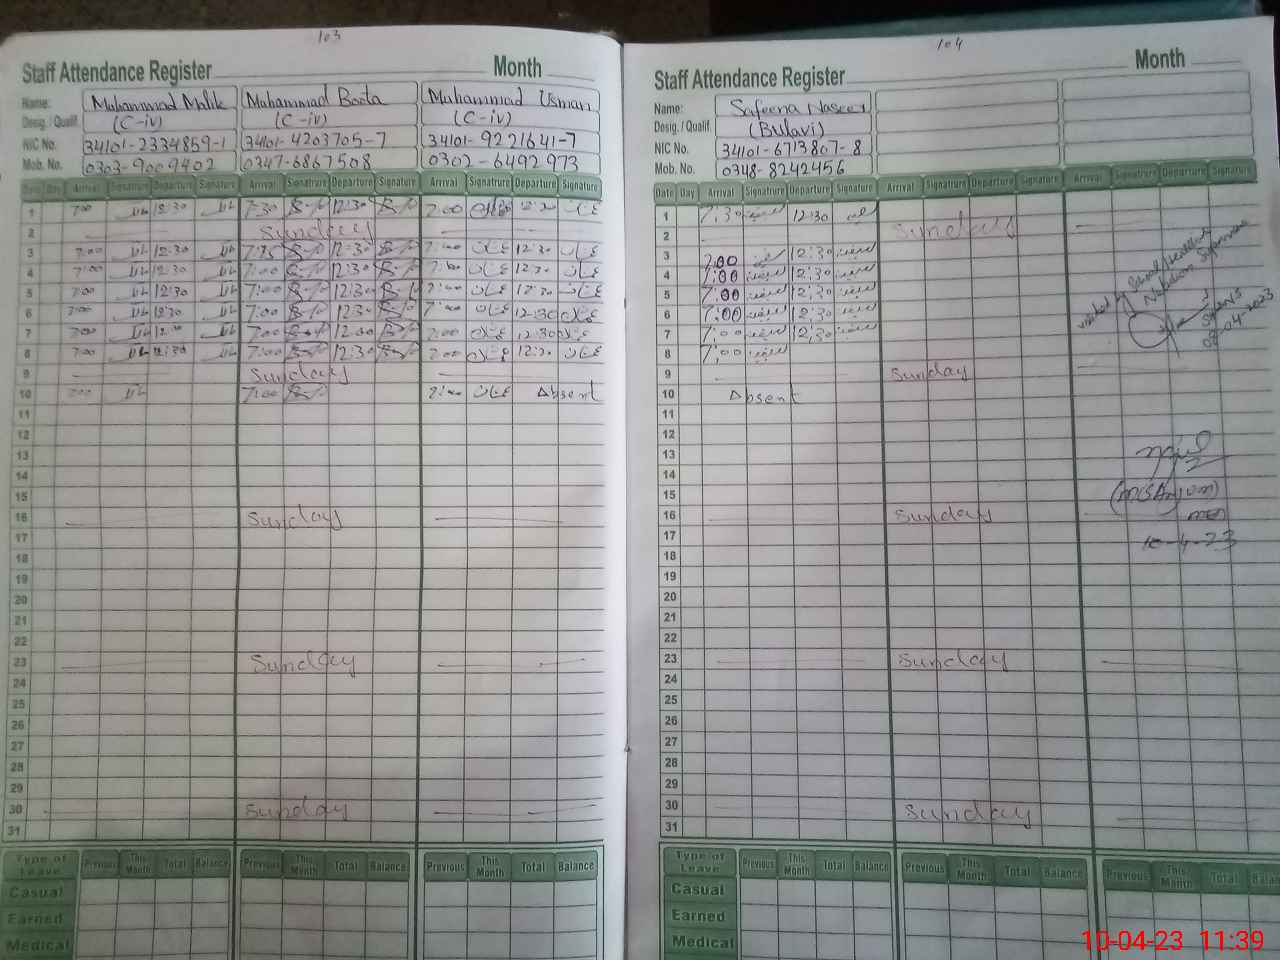 103
Staff Attendance Register Month
Name: Muhammad Malik Muhammad Boota Muhammad Usman
Desig. / Qualif. (C-iv) (C-iv) (C-iv)
NIC No. 34101-2334859-1 34101-4203705-7 34101-9221641-7
Mob. No. 0303-9009402 0347-6867508 0302-6492973
Date Day Arrival Signatrure Departure Signature Arrival Signatrure Departure Signature Arrival Signatrure Departure Signature
1 7:00 12:30 7:30 12:30 7:00 12:30 عثمان
2 Sunday
3 7:00 12:30 7:15 12:30 7:00 عثمان 12:30 عثمان
4 7:00 12:30 7:00 12:30 7:00 عثمان 12:30 عثمان
5 7:00 12:30 7:00 12:30 7:00 عثمان 12:30 عثمان
6 7:00 12:30 7:00 12:30 7:00 عثمان 12:30 عثمان
7 7:00 12:30 7:00 12:30 7:00 عثمان 12:30 عثمان
8 7:00 12:30 7:00 12:30 7:00 عثمان 12:30 عثمان
9 Sunday
10 7:00 7:00 7:00 عثمان Absent
11
12
13
14
15
16 Sunday
17
18
19
20
21
22
23 Sunday
24
25
26
27
28
29
30 Sunday
31
Type of Leave Previous This Month Total Balance Previous This Month Total Balance Previous This Month Total Balance
Casual
Earned
Medical
104
Staff Attendance Register Month
Name: Safeena Naseer
Desig. / Qualif. (Bulavi)
NIC No. 34101-6713807-8
Mob. No. 0348-8242456
Date Day Arrival Signatrure Departure Signature Arrival Signatrure Departure Signature Arrival Signatrure Departure Signature
1 7:30 سفینہ 12:30 سفینہ
2 Sunday
3 7:00 سفینہ 12:30 سفینہ
4 7:00 سفینہ 12:30 سفینہ
5 7:00 سفینہ 12:30 سفینہ
6 7:00 سفینہ 12:30 سفینہ
7 7:00 سفینہ 12:30 سفینہ
8 7:00 سفینہ
9 Sunday
10 Absent
11
12
13
14
15
16 Sunday
17
18
19
20
21
22
23 Sunday
24
25
26
27
28
29
30 Sunday
31
visited
08-04-2023
(MSAnjum)
10-4-23
Type of Leave Previous This Month Total Balance Previous This Month Total Balance Previous This Month Total Balance
Casual
Earned
Medical
10-04-23 11:39